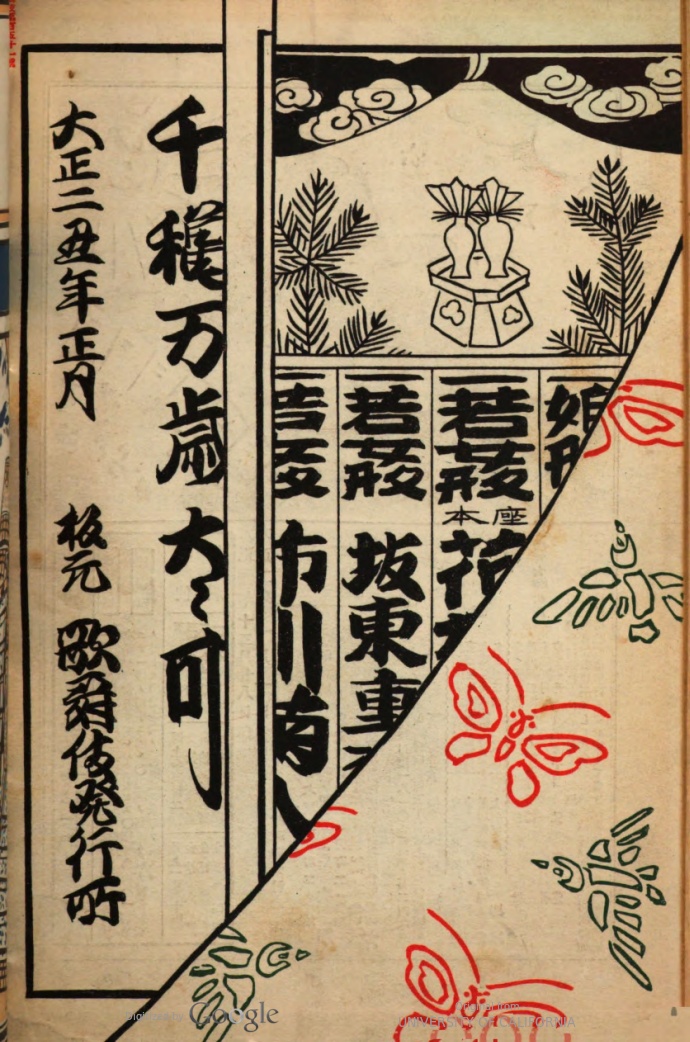 一若女形 座本 花
一若女形 坂東
一若女形 市川
千穐万歳大々叶
大正二丑年正月 板元 歌舞伎発行所
Digitized by Google
Original from
UNIVERSITY OF CALIFORNIA